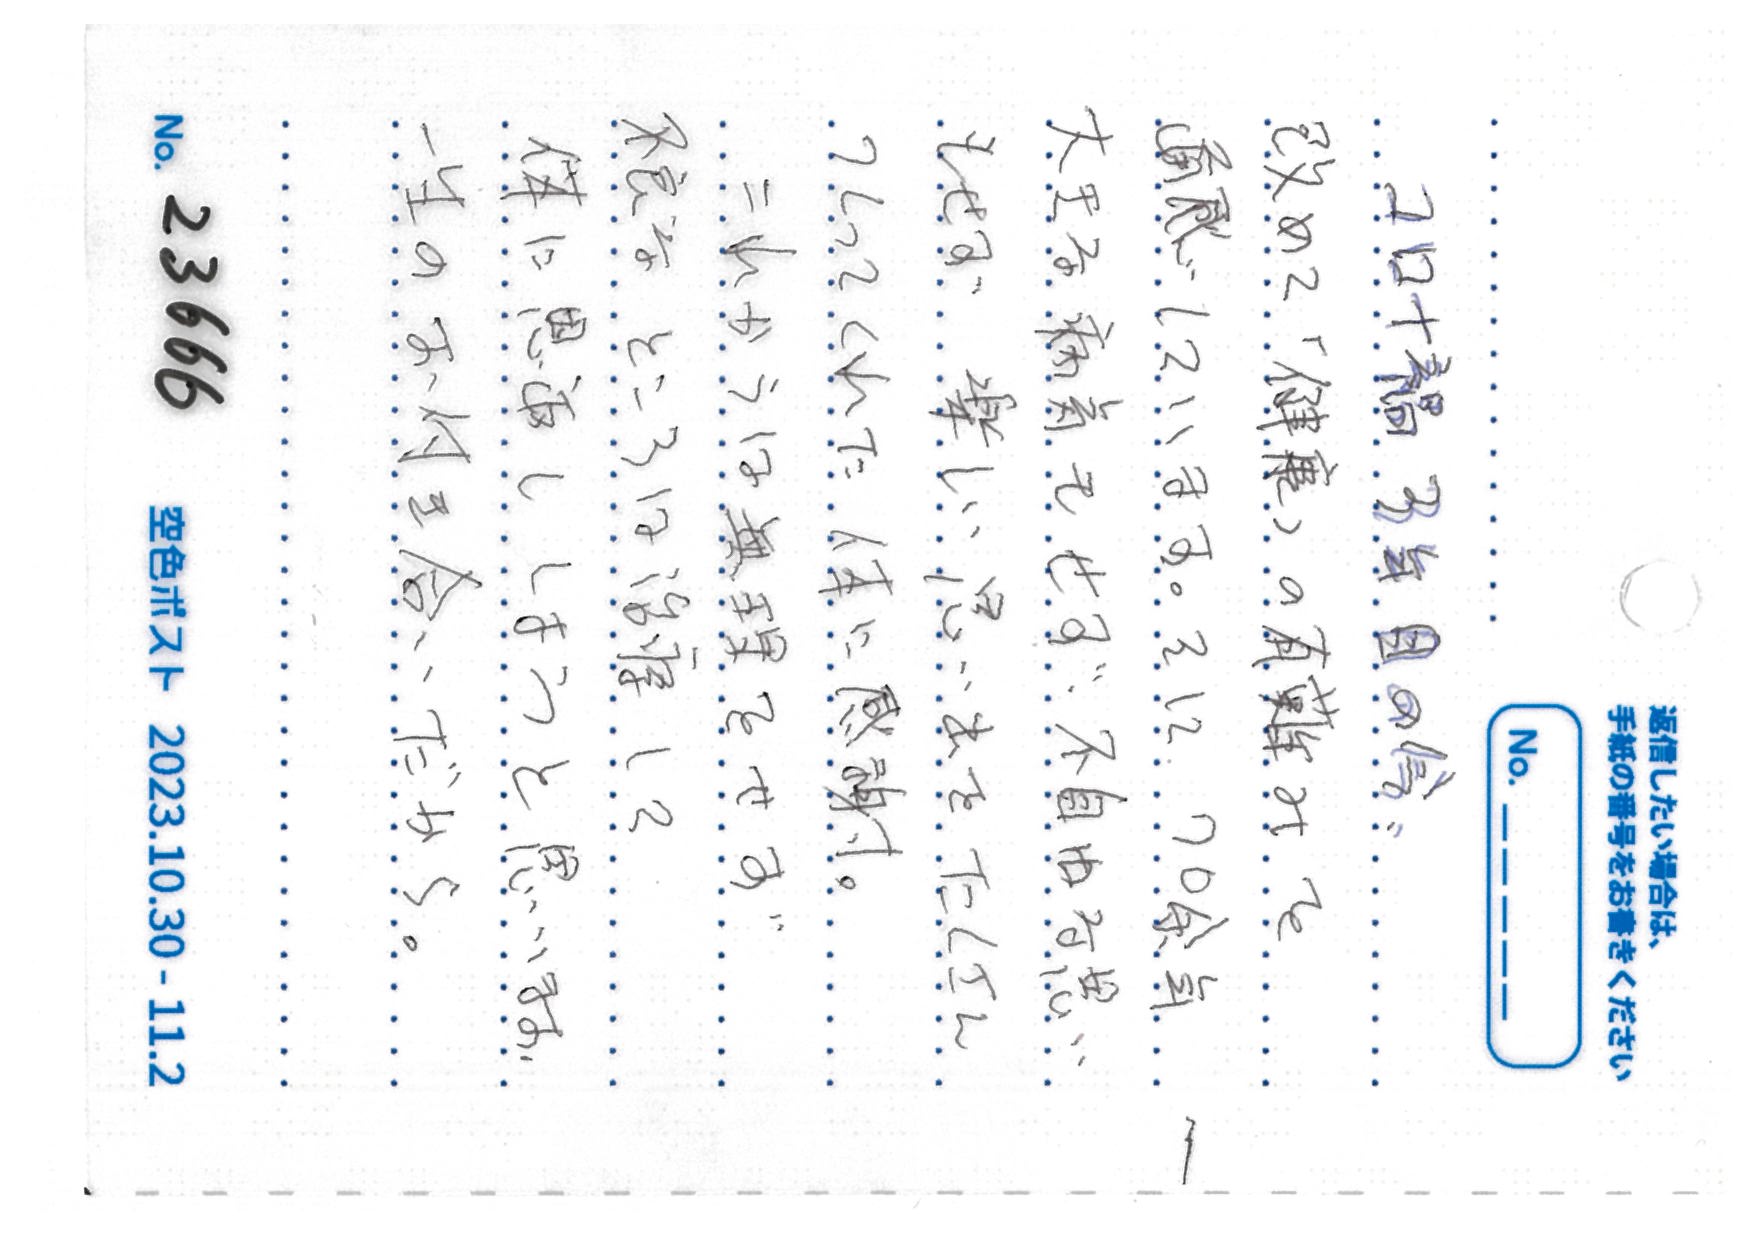 返信したい場合は、
手紙の番号をお書きください
No. _ _ _ _ _
コロナ禍 3年目の今、
改めて「健康」の有難みを
痛感しています。そして、70余年
大きな病気もせず、不自由な思い
もせず 楽しい思い出をたくさん
つくってくれた 体に感謝。
これからは無理をせず
不良な ところは治療して
体に恩返し しようと思います。
一生のお付き合いだから。
No. 23666
空色ポスト 2023.10.30 - 11.2